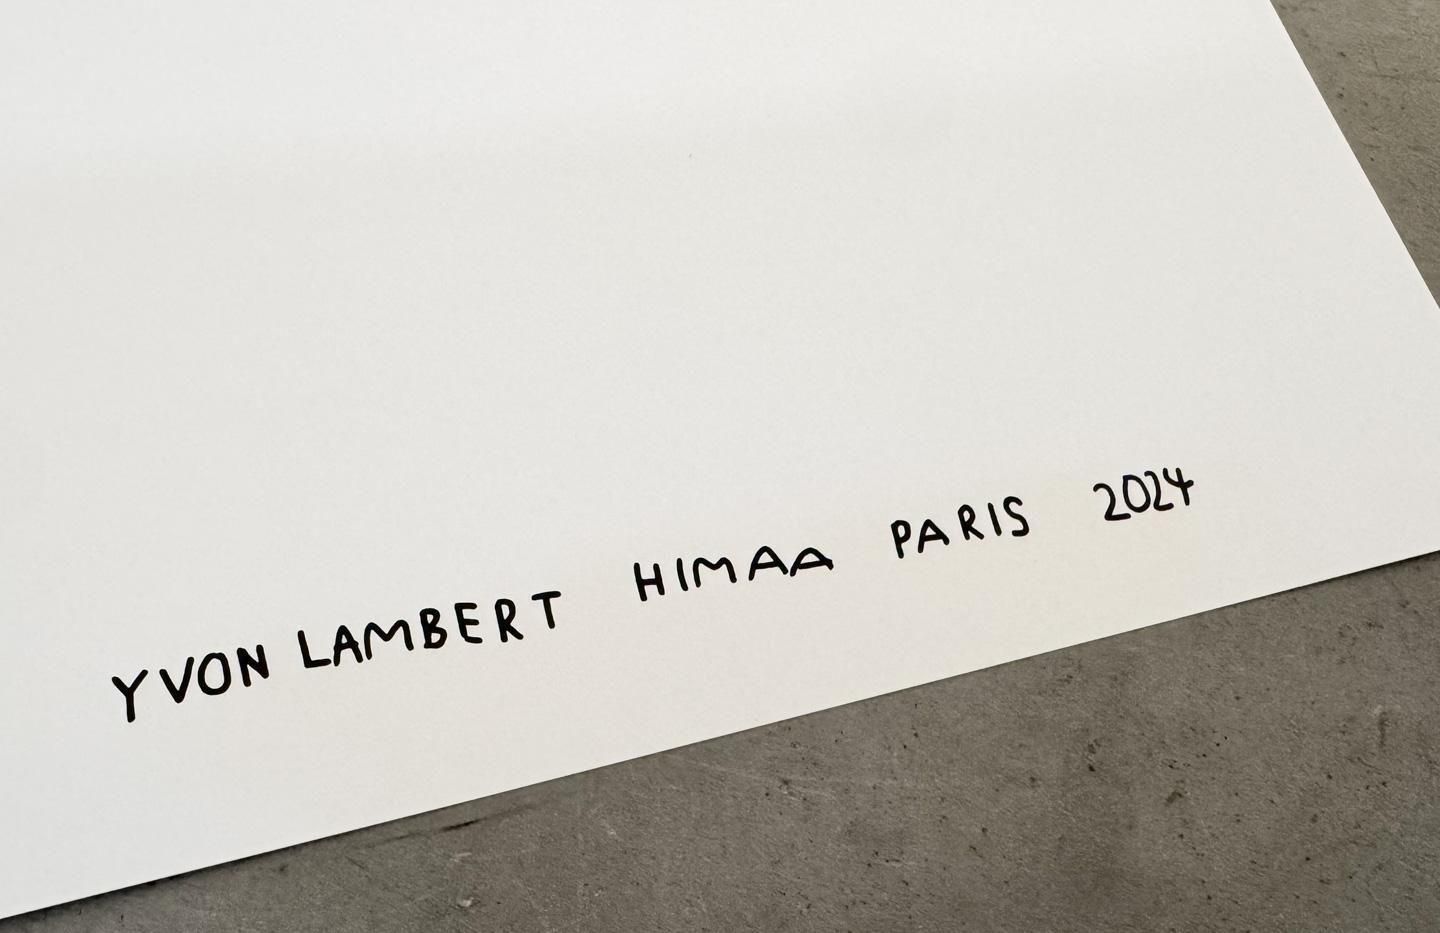 YVON LAMBERT HIMAA PARIS 2024